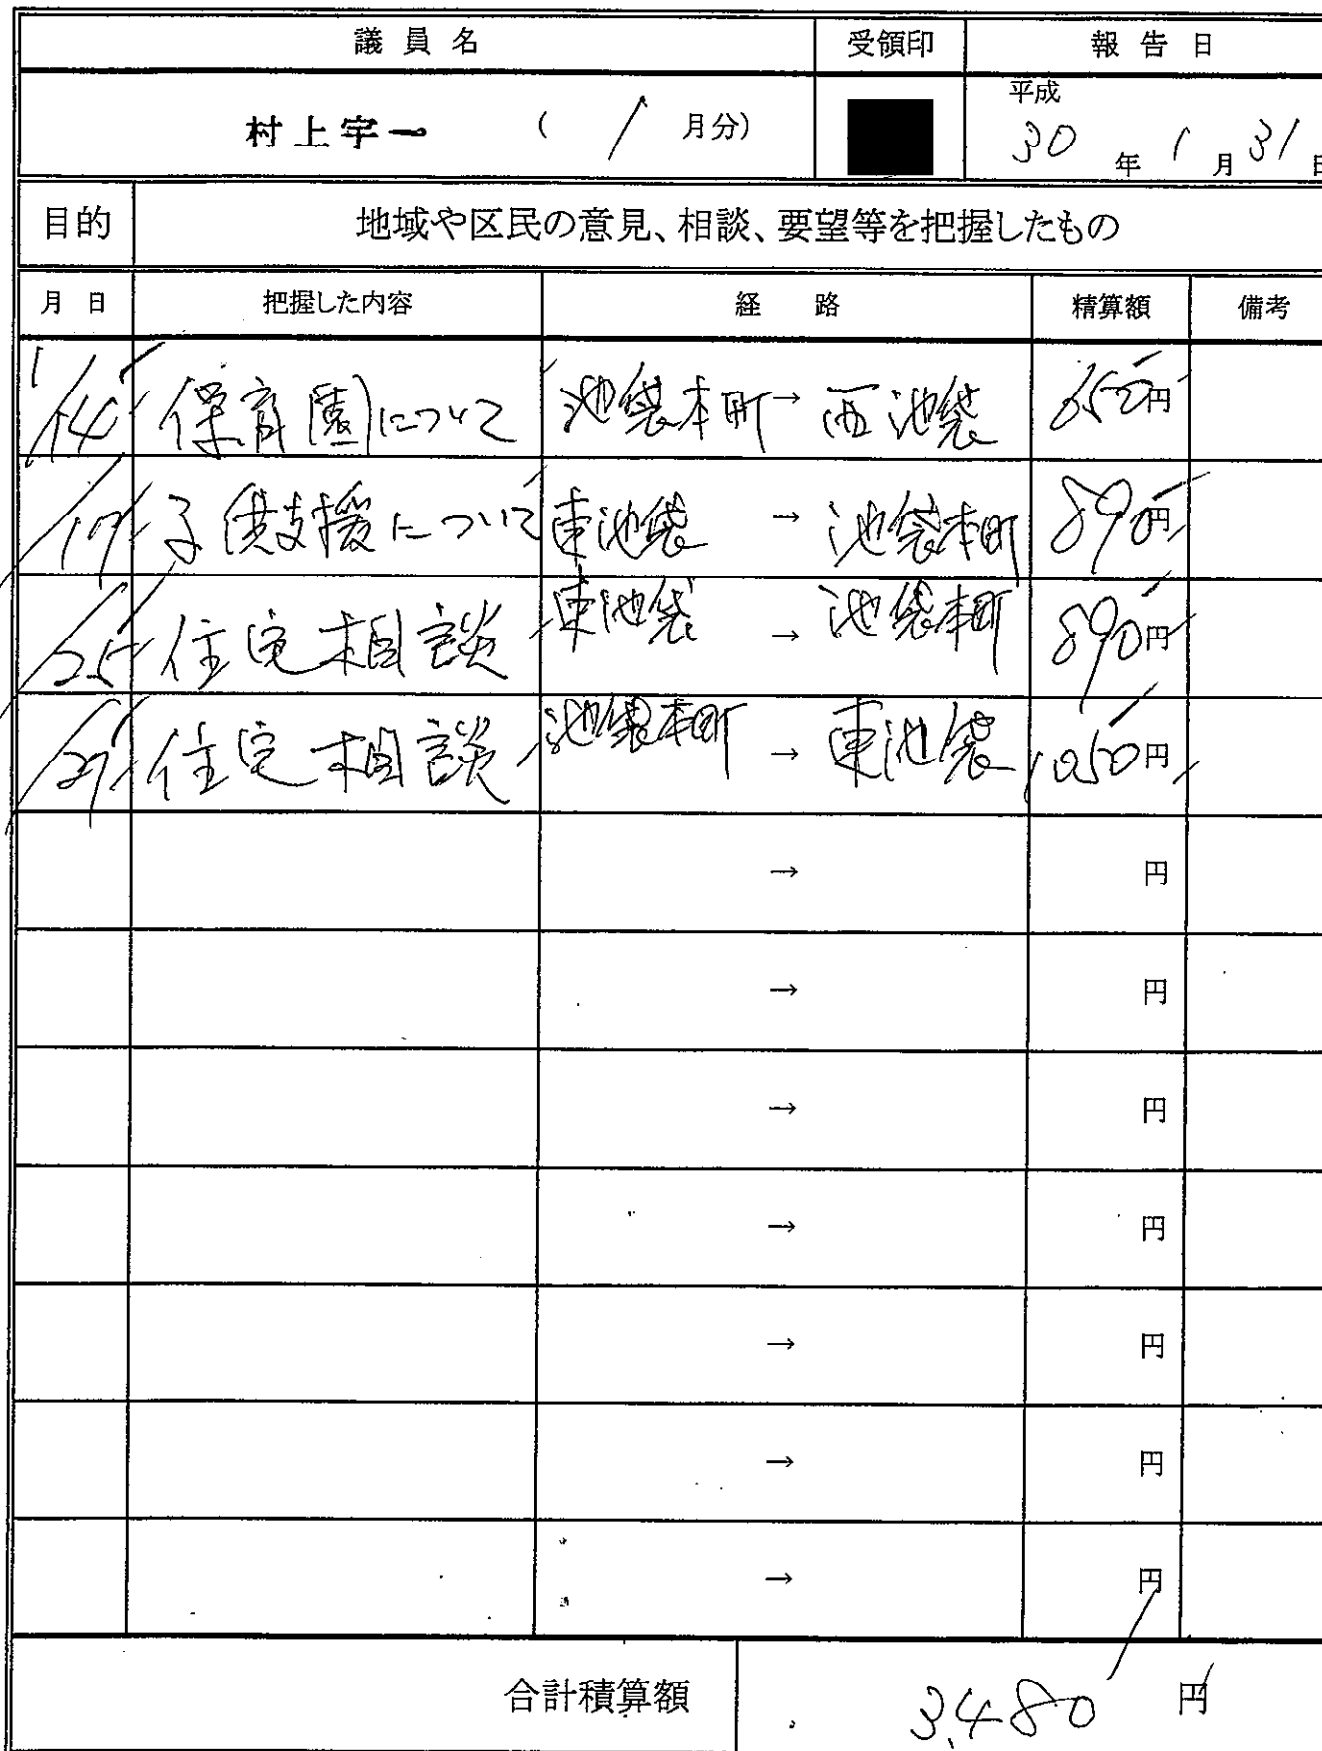 議員名 受領印 報告日
村上宇一 ( 1 月分) 平成 30 年 1 月 31 日
目的 地域や区民の意見、相談、要望等を把握したもの
月日 把握した内容 経路 精算額 備考
1/14 保育園について 池袋本町 → 西池袋 650円
/19 子供支援について 東池袋 → 池袋本町 890円
/25 住宅相談 東池袋 → 池袋本町 890円
/29 住宅相談 池袋本町 → 東池袋 1050円
→ 円
→ 円
→ 円
→ 円
→ 円
→ 円
→ 円
合計積算額 3,480 円